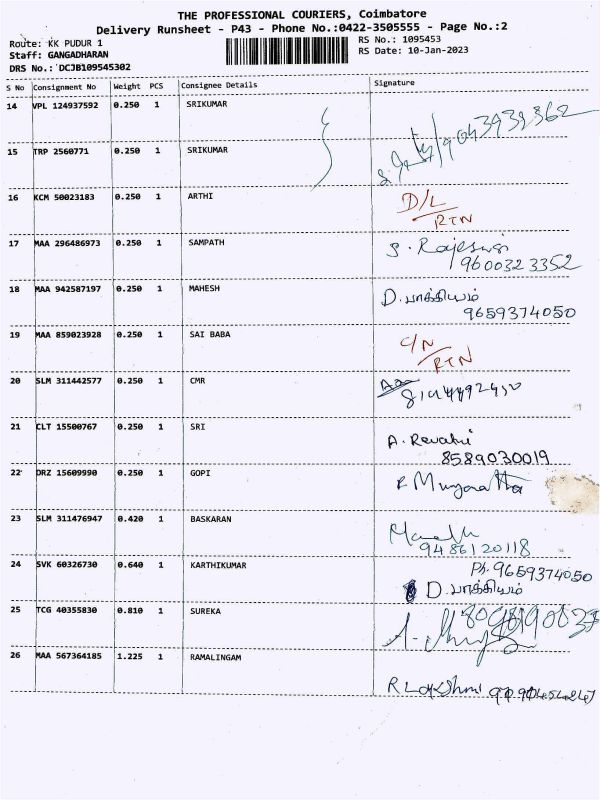 THE PROFESSIONAL COURIERS, Coimbatore
Delivery Runsheet - P43 - Phone No.:0422-3505555 - Page No.:2
Route: KK PUDUR 1
RS No.: 1095453
Staff: GANGADHARAN
RS Date: 10-Jan-2023
DRS No.: DCJB109545302
S No Consignment No Weight PCS Consignee Details Signature
14 VPL 124937592 0.250 1 SRIKUMAR
15 TRP 2560771 0.250 1 SRIKUMAR
16 KCM 50023183 0.250 1 ARTHI D/L
RTN
17 MAA 296486973 0.250 1 SAMPATH S. Rajeswari
9600323352
18 MAA 942587197 0.250 1 MAHESH D. பாக்கியம்
9659374050
19 MAA 859023928 0.250 1 SAI BABA C/N
RTN
20 SLM 311442577 0.250 1 CMR
21 CLT 15500767 0.250 1 SRI A. Revathi
8589030019
22 DRZ 15609990 0.250 1 GOPI
23 SLM 311476947 0.420 1 BASKARAN
9486120118
24 SVK 60326730 0.640 1 KARTHIKUMAR Ph. 9659374050
D. பாக்கியம்
25 TCG 40355830 0.810 1 SUREKA
26 MAA 567364185 1.225 1 RAMALINGAM
R Lakshmi